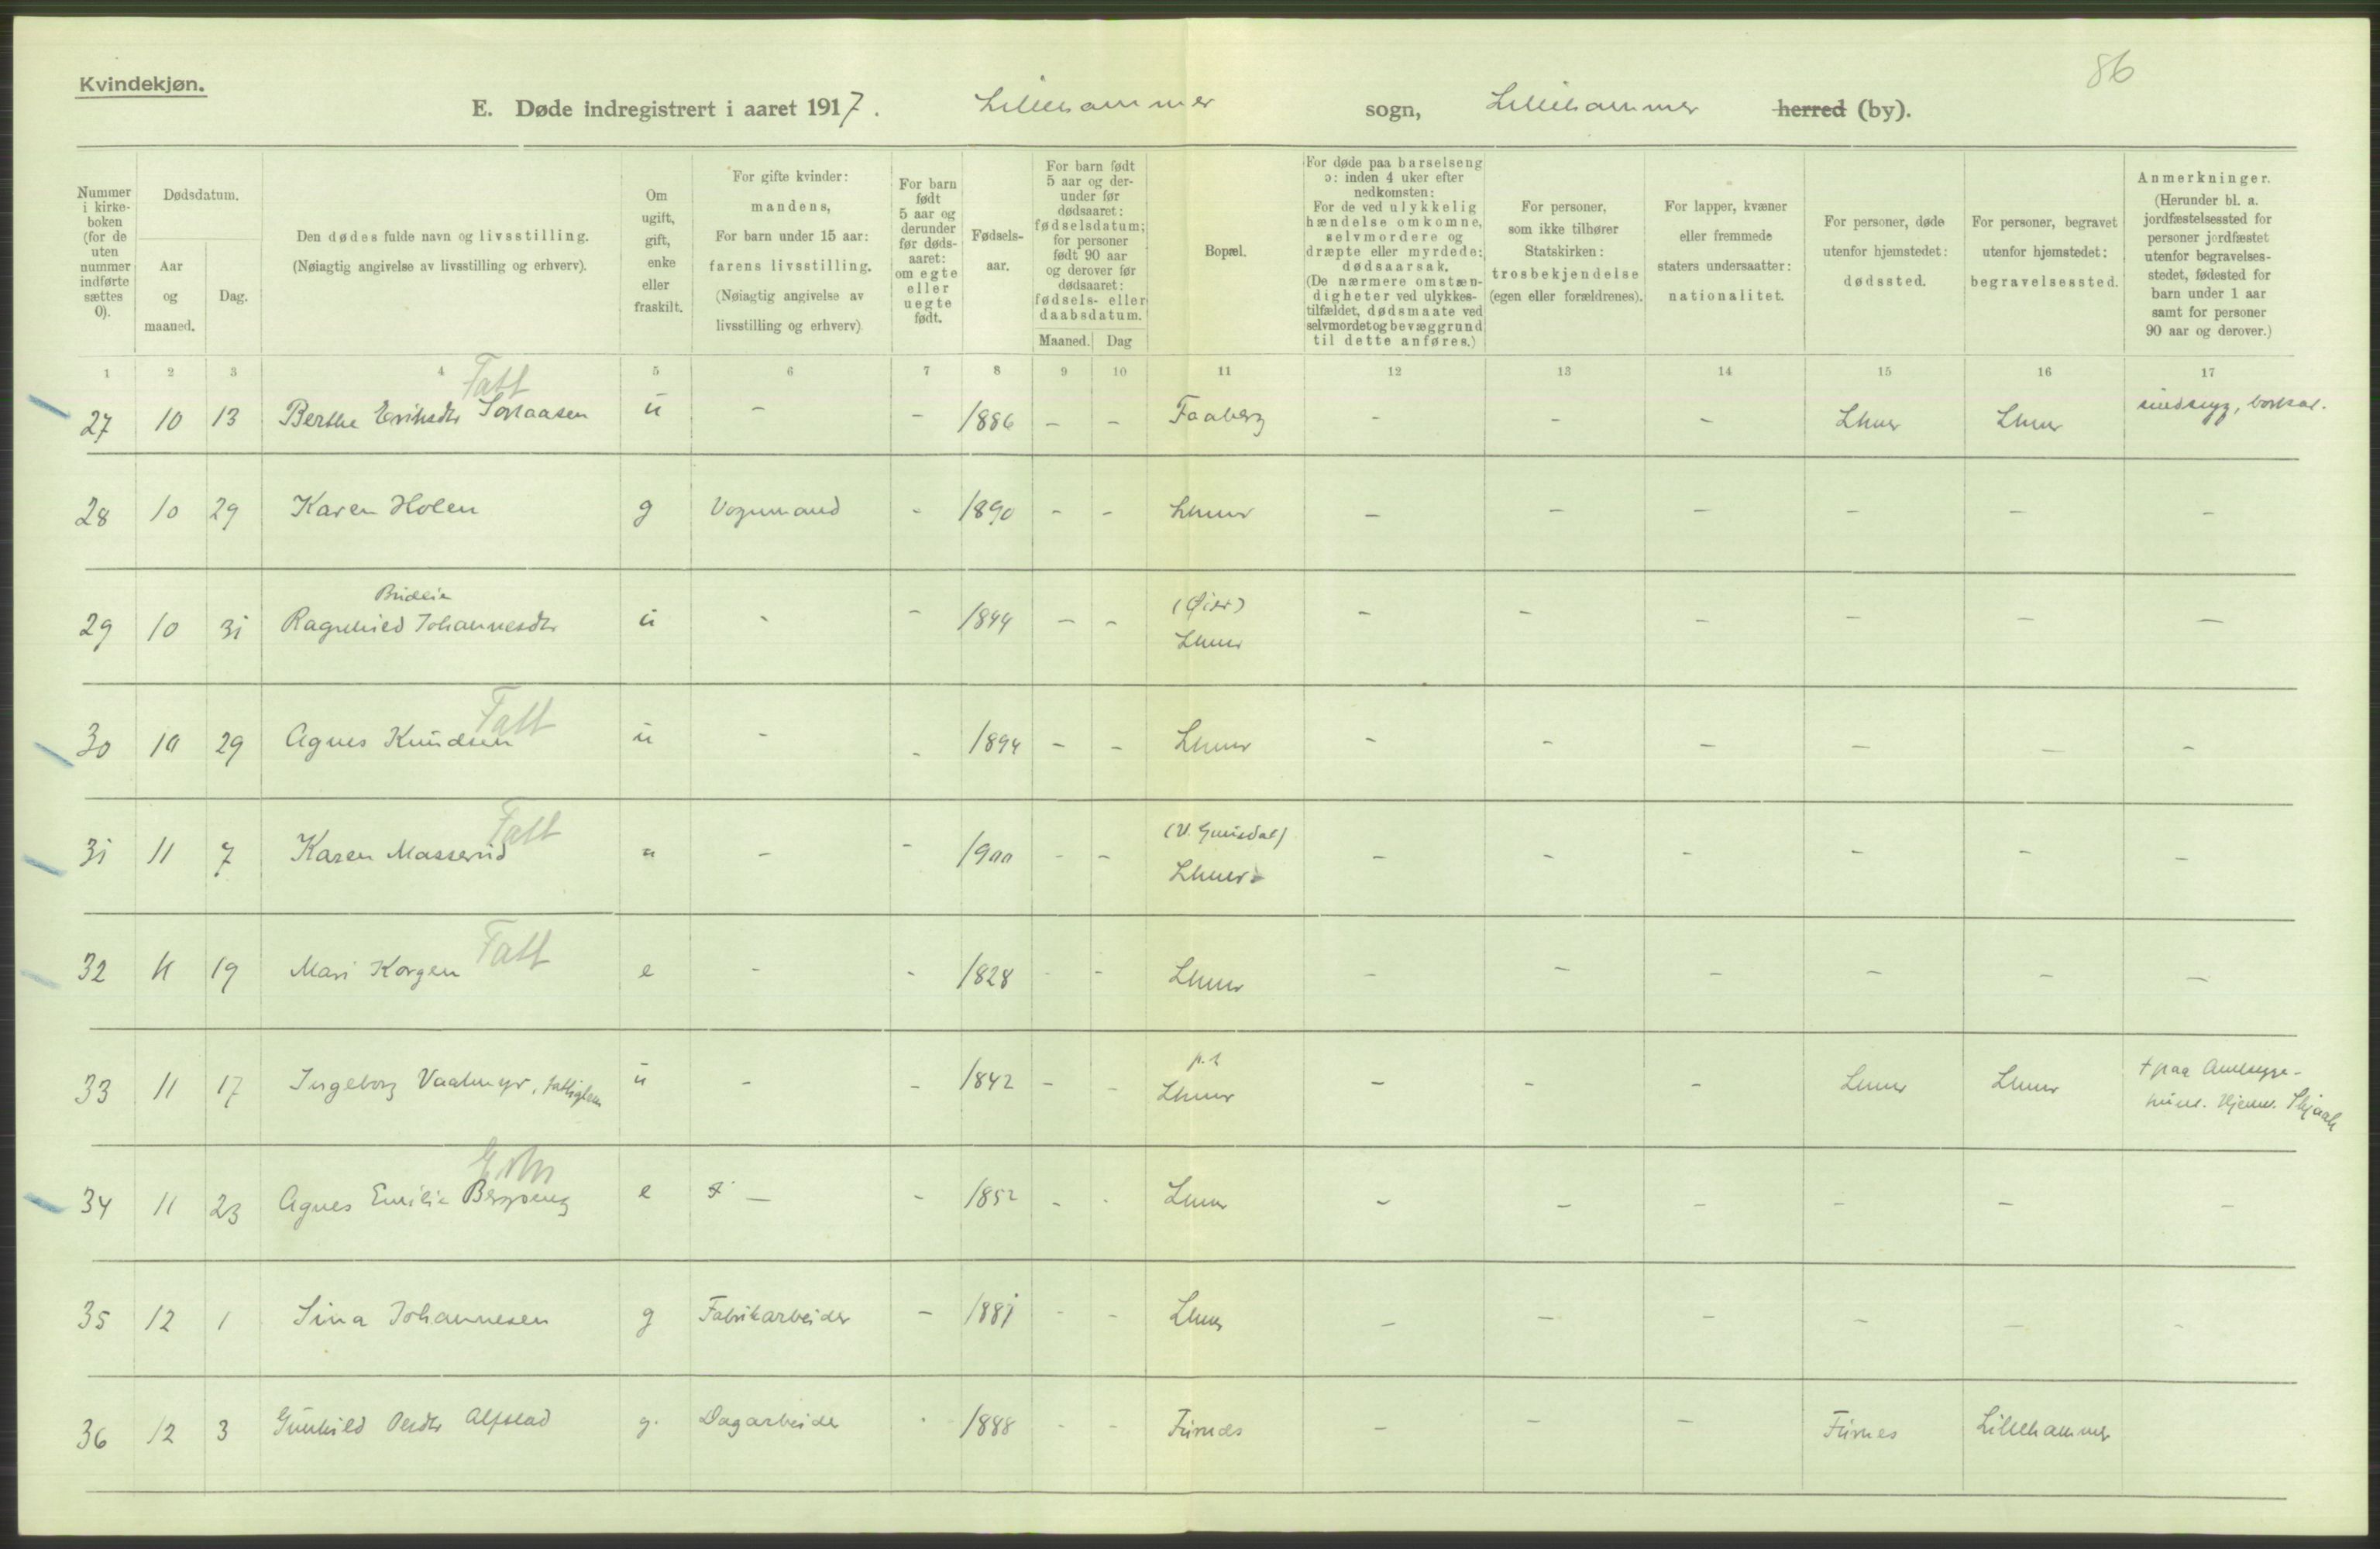 Kvindekjøn.
86
E. Døde indregistrert i aaret 1917. Lillehammer sogn, Lillehammer herred (by).
Nummer i kirke-boken (for de uten nummer indførte sættes 0).
Dødsdatum.
Aar og maaned.
Dag.
Den dødes fulde navn og livsstilling.
(Nøiagtig angivelse av livsstilling og erhverv).
Om ugift, gift, enke eller fraskilt.
For gifte kvinder: mandens,
For barn under 15 aar: farens livsstilling.
(Nøiagtig angivelse av livsstilling og erhverv)
For barn født 5 aar og derunder før døds-aaret: om egte eller uegte født.
Fødsels-aar.
For barn født 5 aar og der-under før dødsaaret: fødselsdatum; for personer født 90 aar og derover før dødsaaret: fødsels- eller daabsdatum.
Maaned.
Dag
Bopæl.
For døde paa barselseng ɔ: inden 4 uker efter nedkomsten:
For de ved ulykkelig hændelse omkomne, selvmordere og dræpte eller myrdede: dødsaarsak.
(De nærmere omstæn-digheter ved ulykkes-tilfældet, dødsmaate ved selvmordet og bevæggrund til dette anføres.)
For personer, som ikke tilhører Statskirken: trosbekjendelse (egen eller forældrenes).
For lapper, kvæner eller fremmede staters undersaatter: nationalitet.
For personer, døde utenfor hjemstedet: dødssted.
For personer, begravet utenfor hjemstedet: begravelsessted.
Anmerkninger.
(Herunder bl. a. jordfæstelsessted for personer jordfæstet utenfor begravelses-stedet, fødested for barn under 1 aar samt for personer 90 aar og derover.)
1 2 3 4 5 6 7 8 9 10 11 12 13 14 15 16 17
Fatt
27 10 13 Berthe Eriksdtr u - - 1886 - - Faaberg - - - Lhmr Lhmr sindssyg,
28 10 29 Karen Holen g Vognmand - 1890 - - Lhmr - - - - - -
(Øier)
29 10 31 Ragnhild Johannesdtr u - - 1844 - - Lhmr - - - - - -
Fatt
30 10 29 Agnes Knudsen u - - 1894 - - Lhmr - - - - - -
Fatt (V. Gausdal)
31 11 7 Karen Masserud u - - 1900 - - Lhmr - - - - - -
Fatt
32 11 19 Mari Korgen e - - 1828 - - Lhmr - - - - - -
p.t
33 11 17 Ingeborg Vaalmyr, fattiglem u - - 1842 - - Lhmr - - - Lhmr Lhmr + paa Amtssyge-
hus. Hjemst. Skjaak
34 11 23 Agnes Emilie Bergseng e - - 1852 - - Lhmr - - - - - -
35 12 1 Sina Johannesen g Fabrikarbeider - 1889 - - Lhmr - - - - - -
36 12 3 Gunhild Olsdtr Alfstad g. Dagarbeider - 1888 - - Furnes - - - Furnes Lillehammer